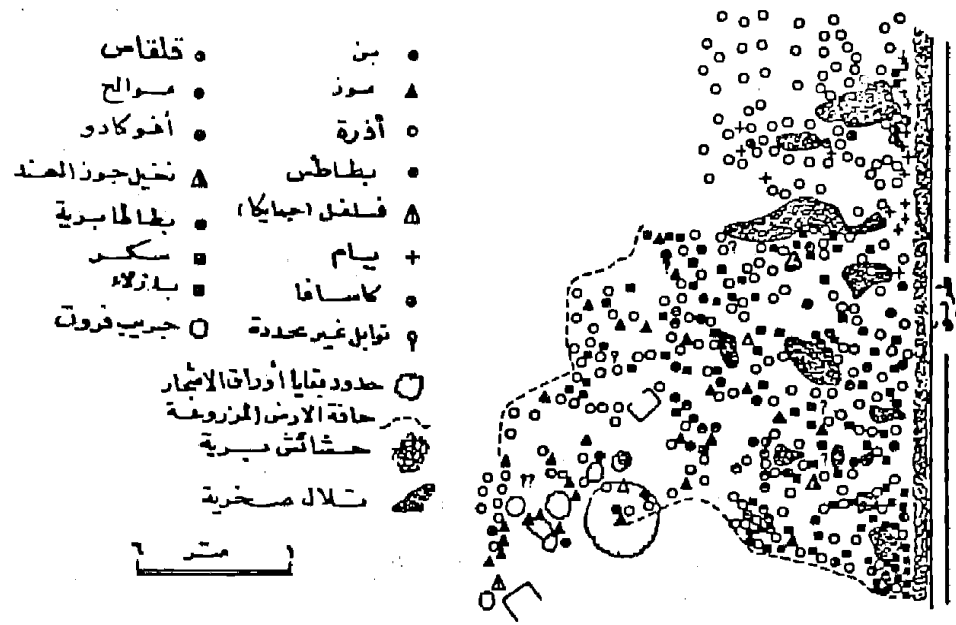 بن
موز
أذرة
بطاطس
فلفل (جمايكا)
يام
كاسافا
توابل غير محددة
قلقاس
موالح
أفوكادو
نخيل جوز الهند
بطاطا برية
سكر
بازلاء
جريب فروت
حدود بقايا أوراق الاشجار
حافة الارض المزروعة
حشائش برية
تلال صخرية
٦ متر ١
? 
?
??
?
?